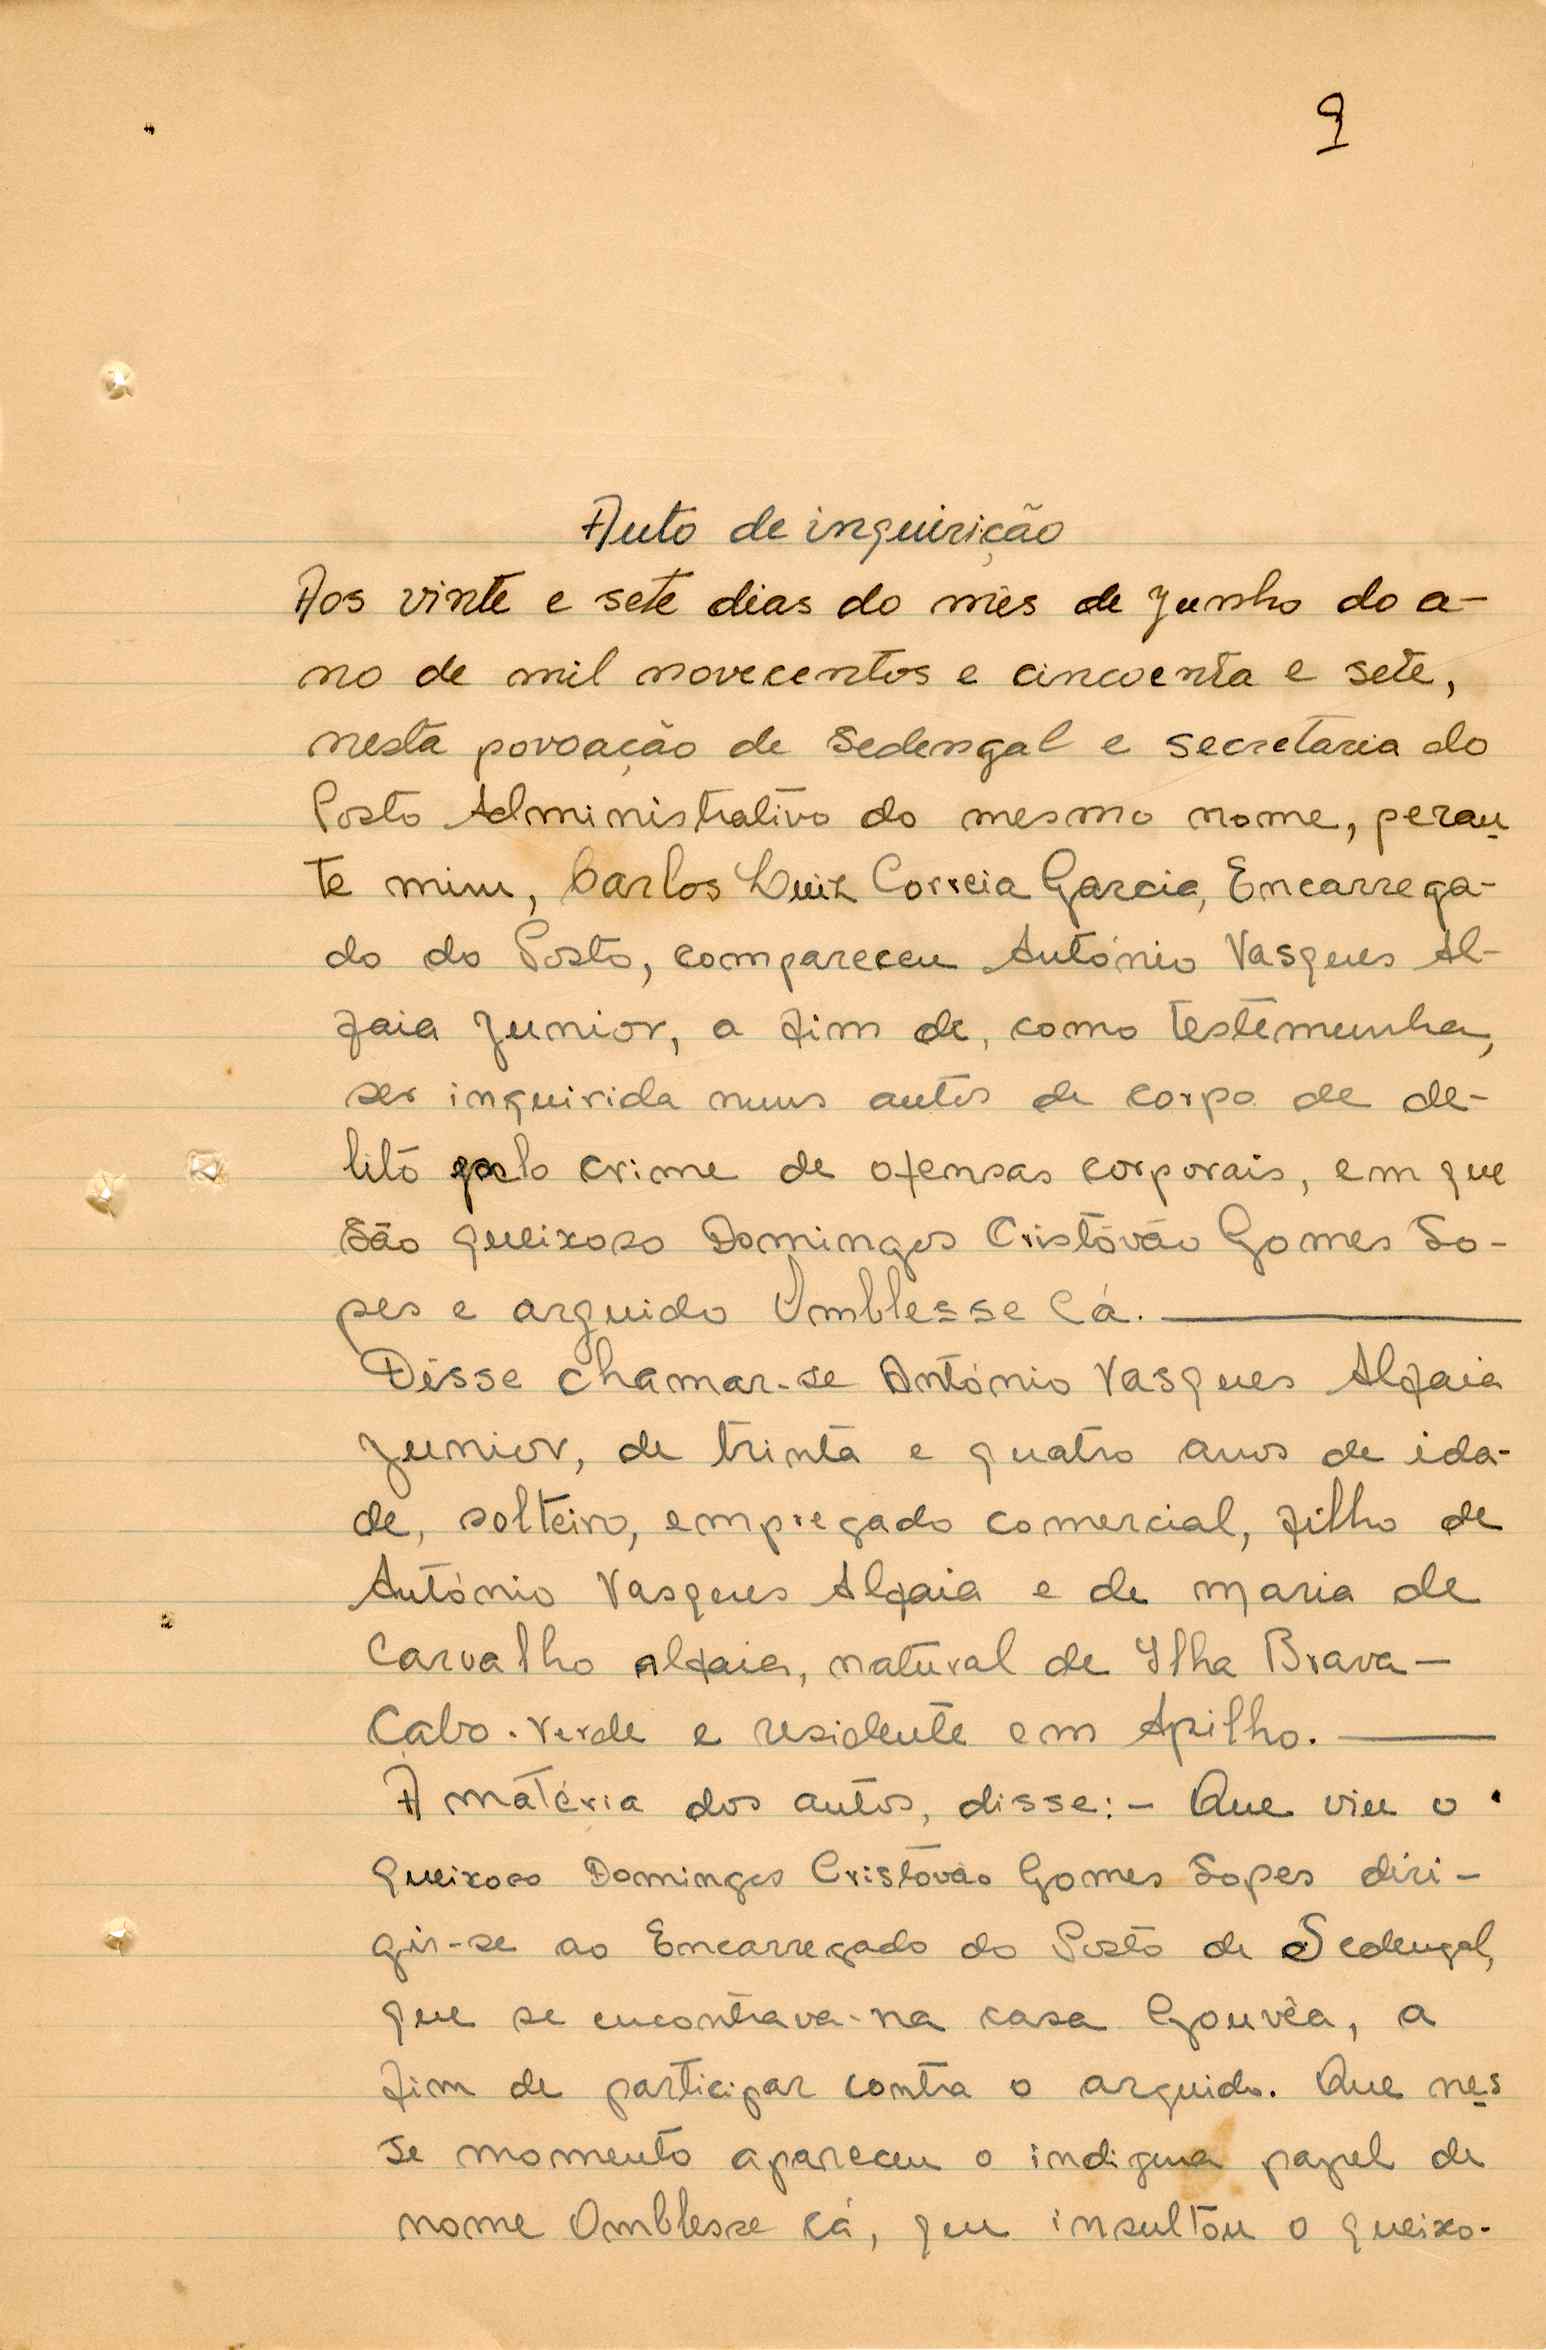 9
Auto de inquirição
Aos vinte e sete dias do mês de Junho do a-
no de mil novecentos e cincoenta e sete,
nesta povoação de Sedengal e secretaria do
Posto Administrativo do mesmo nome, peran
te mim, Carlos Luiz Correia Garcia, Encarrega-
do do Posto, compareceu António Vasques Al-
faia Junior, a fim de, como testemunha,
ser inquirida nuns autos de corpo de de-
lito pelo crime de ofensas corporais, em que
são queixoso Domingos Cristóvão Gomes Lo-
pes e arguido Omblesse Cá.
Disse chamar-se António Vasques Alfaia
Junior, de trinta e quatro anos de ida-
de, solteiro, empregado comercial, filho de
António Vasques Alfaia e de Maria de
Carvalho Alfaia, natural de Ilha Brava-
Cabo-Verde e residente em Apilho.
A matéria dos autos, disse:- Que viu o
queixoso Domingos Cristóvão Gomes Lopes diri-
gir-se ao Encarregado do Posto de Sedengal,
que se encontrava-na casa Gouvêa, a
fim de participar contra o arguido. Que nes
se momento apareceu o indigena papel de
nome Omblesse Cá, que insultou o queixo-